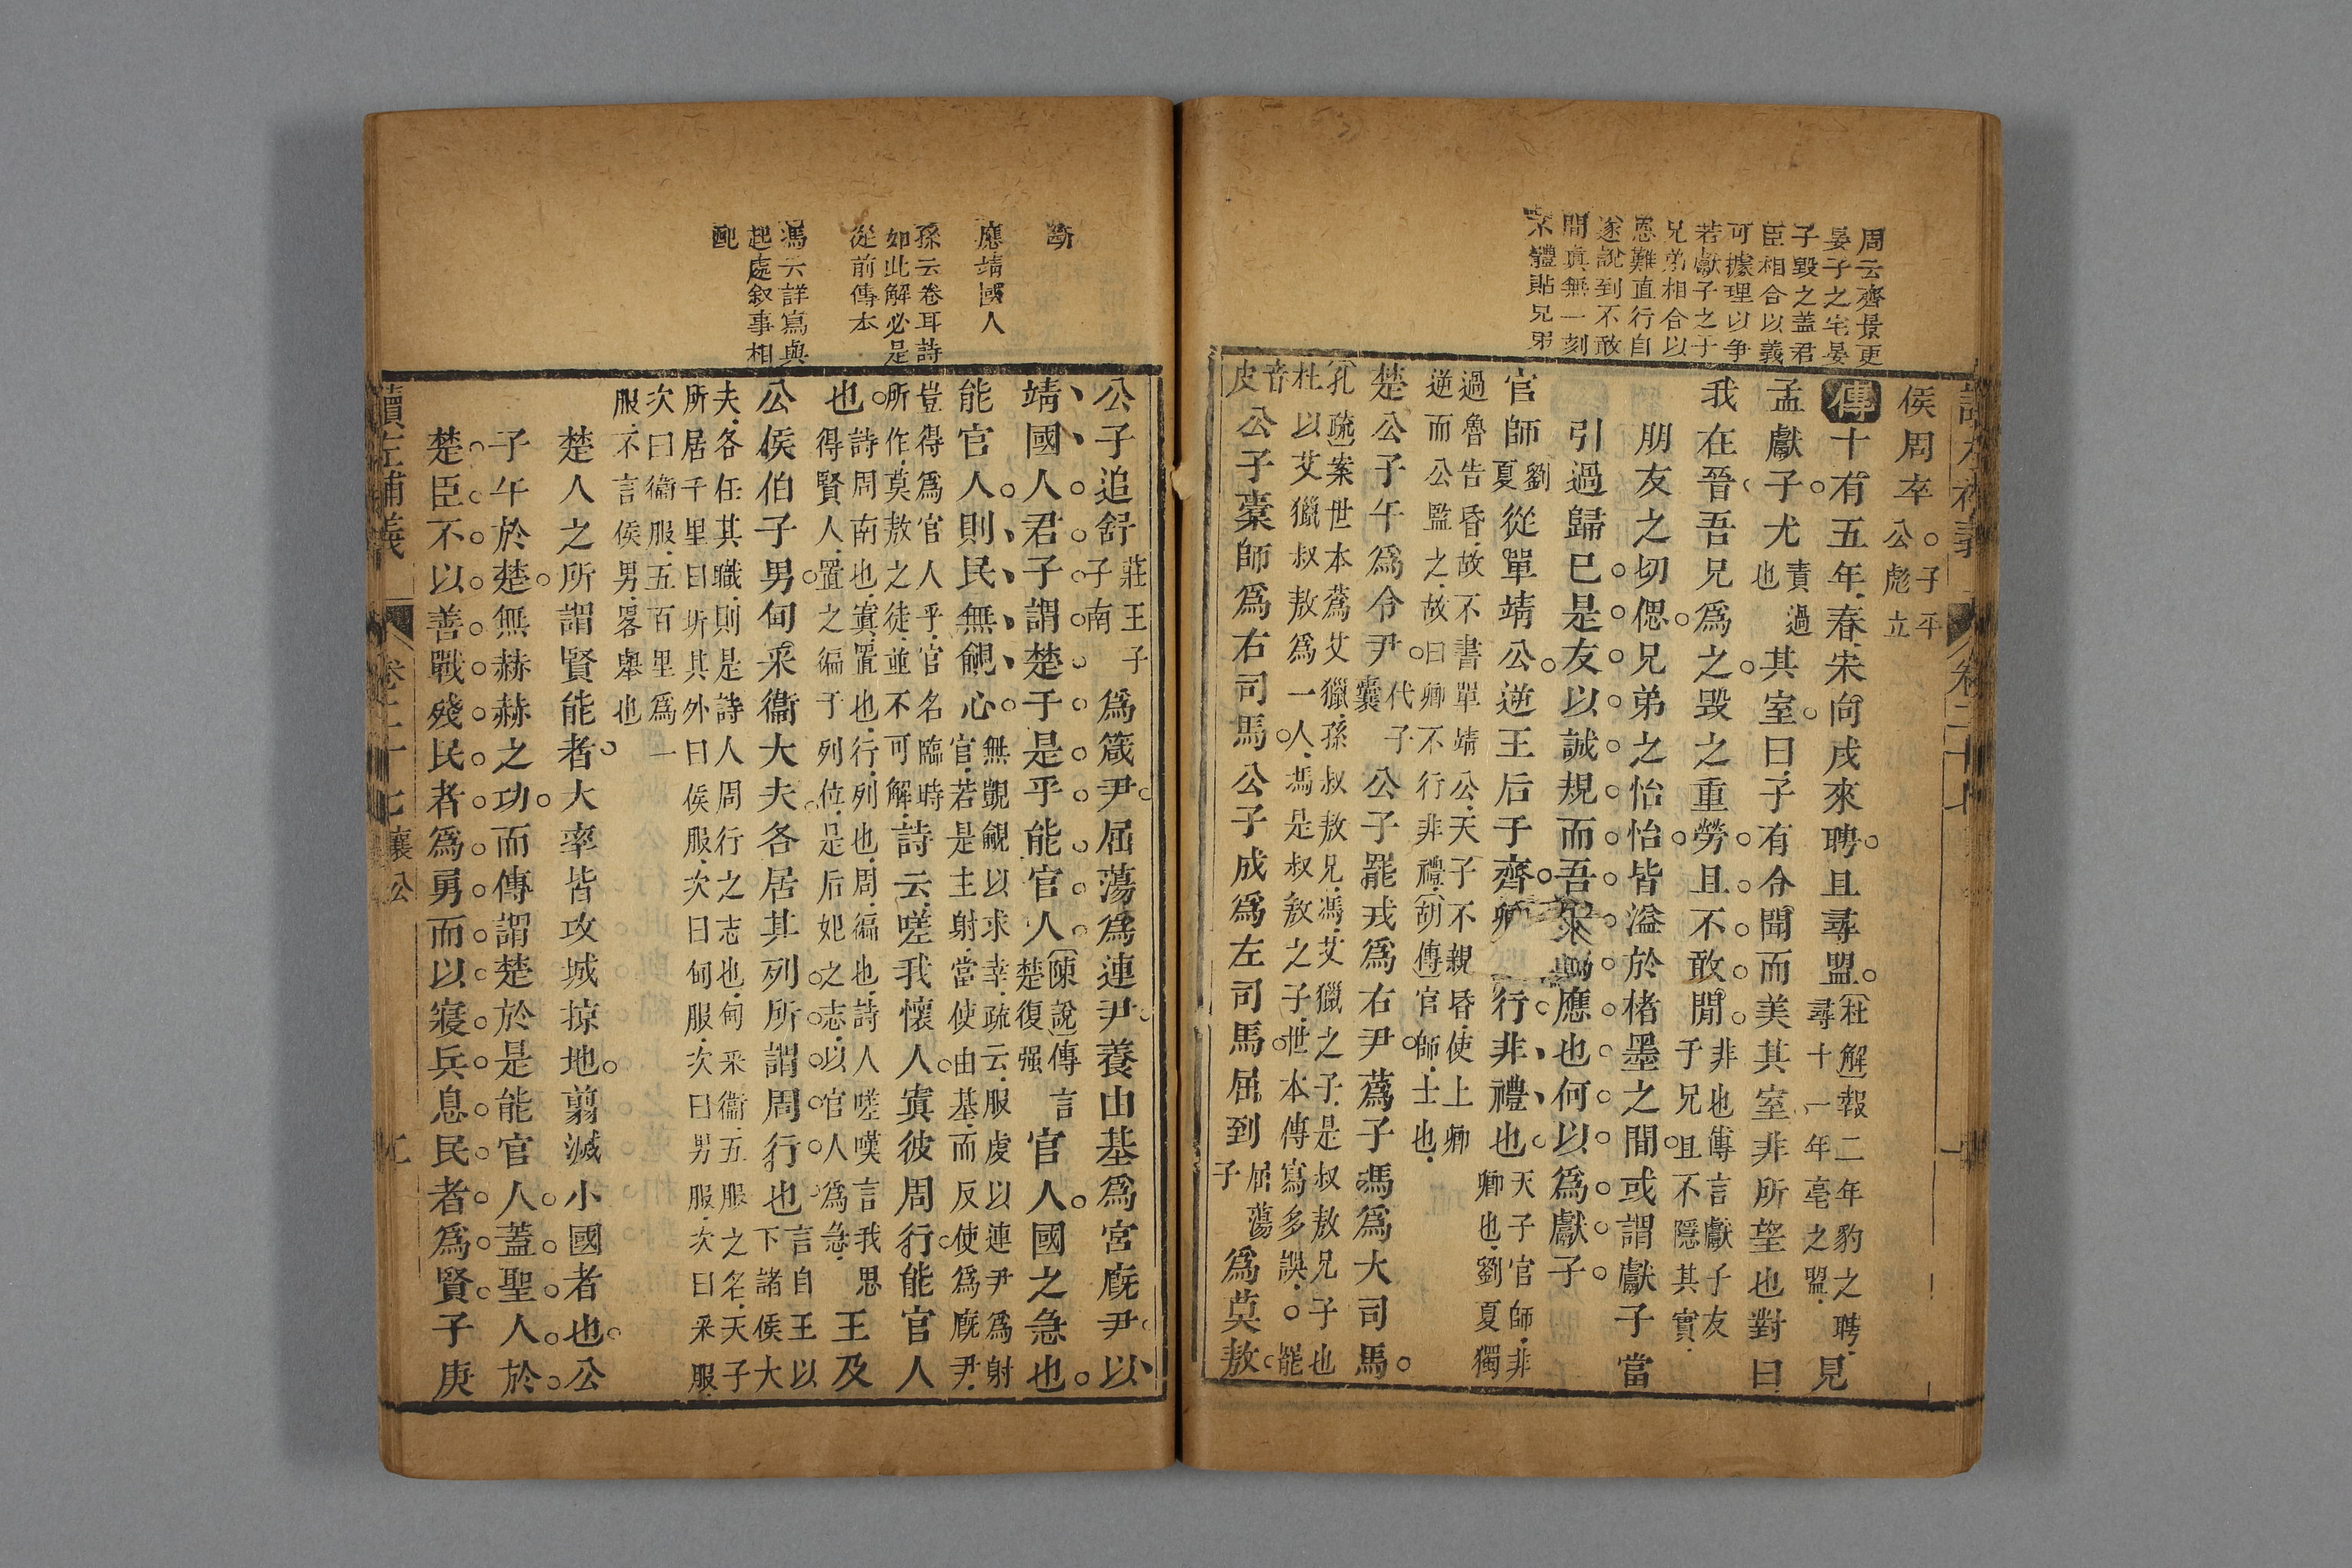 周云齊景更
晏子之宅晏
子毀之蓋君
臣相合以義
可據理以争
若獻子之于
兄弟相合以
恩難直行自
遂說到不敢
間真無一刻
不體貼兄弟
侯周卒公彪立子平
傳十有五年春宋向戌來聘且尋盟杜解報二年豹之聘尋十一年亳之盟見
孟獻子尤責過也其室曰子有令聞而美其室非所望也對曰
我在晉吾兄爲之毀之重勞且不敢間非也傳言獻子友于兄且不隱其實
朋友之切偲兄弟之怡怡皆溢於楮墨之間或謂獻子當
引過歸已是友以誠規而吾應也何以爲獻子
官師劉夏從單靖公逆王后于齊卿行非禮也天子官師非卿也劉夏獨
過魯告昏故不書單靖公天子不親昏使上卿
逆而公監之故曰卿不行非禮胡傳官師士也
楚公子午爲令尹代子囊公子罷戎爲右尹蒍子馮爲大司馬
孔疏案世本蒍艾獵孫叔敖兄馮艾獵之子是叔敖兄子也
杜以艾獵叔敖爲一人馮是叔敖之子世本傳寫多誤罷
音皮公子橐師爲右司馬公子成爲左司馬屈到屈蕩子爲莫敖
讀左補義 卷二十七
斷
應靖國人
孫云卷耳詩
如此解必是
從前傳本
馮云詳寫與
起處叙事相
配
公子追舒莊王子子南爲箴尹屈蕩爲連尹養由基爲宮廐尹以
靖國人君子謂楚于是乎能官人陳說傳言楚復强官人國之急也
能官人則民無覦心無覬覦以求幸疏云服虔以連尹爲射官若是主射當使由基而反使爲廐尹
豈得爲官人乎官名臨時所作莫敖之徒並不可解詩云嗟我懷人寘彼周行能官人
也詩周南也寘置也行列也周徧也詩人嗟嘆言我思得賢人置之徧于列位是后妃之志以官人爲急王及
公侯伯子男甸采衞大夫各居其列所謂周行也言自王以下諸侯大
夫各任其職則是詩人周行之志也甸采衞五服之名天子
所居千里曰圻其外曰侯服次曰甸服次曰男服次曰采服
次曰衞服五百里爲一
服不言侯男畧舉也
楚人之所謂賢能者大率皆攻城掠地翦滅小國者也公
子午於楚無赫赫之功而傳謂楚於是能官人蓋聖人於
楚臣不以善戰殘民者爲勇而以寢兵息民者爲賢子庚
讀左補義 卷二十七 襄公